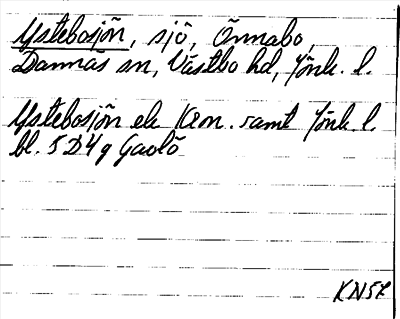 Ystebosjön, sjö, Önnabo,
Dannäs sn, Västbo hd, Jönk. l.
Ystebosjön ek Kem. samt Jönk l.
bl. 5D4g Gaslö
KN57